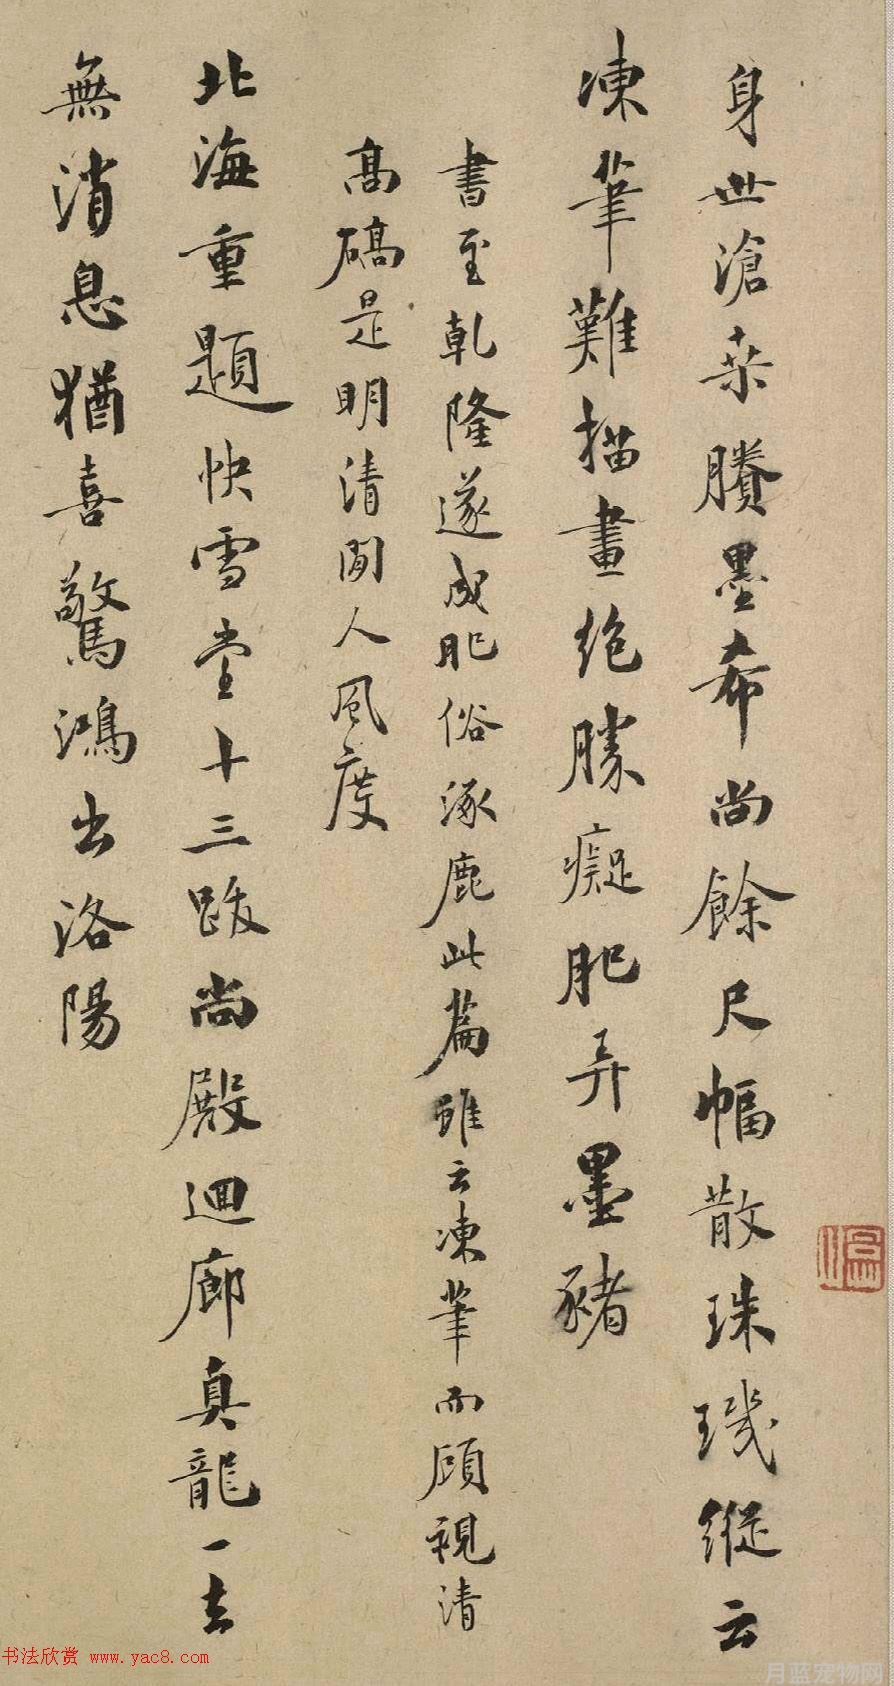 身世滄桑賸墨希尚餘尺幅散珠璣縱云
凍筆難描畫絶勝癡肥弄墨豬
書至乾隆遂成肥俗涿鹿此篇雖云凍筆而顧視清
高碻是明清間人風度
北海重題快雪堂十三跋尚殿迴廊真龍一去
無消息猶喜驚鴻出洛陽
书法欣赏 www.yac8.com
月蓝宠物网